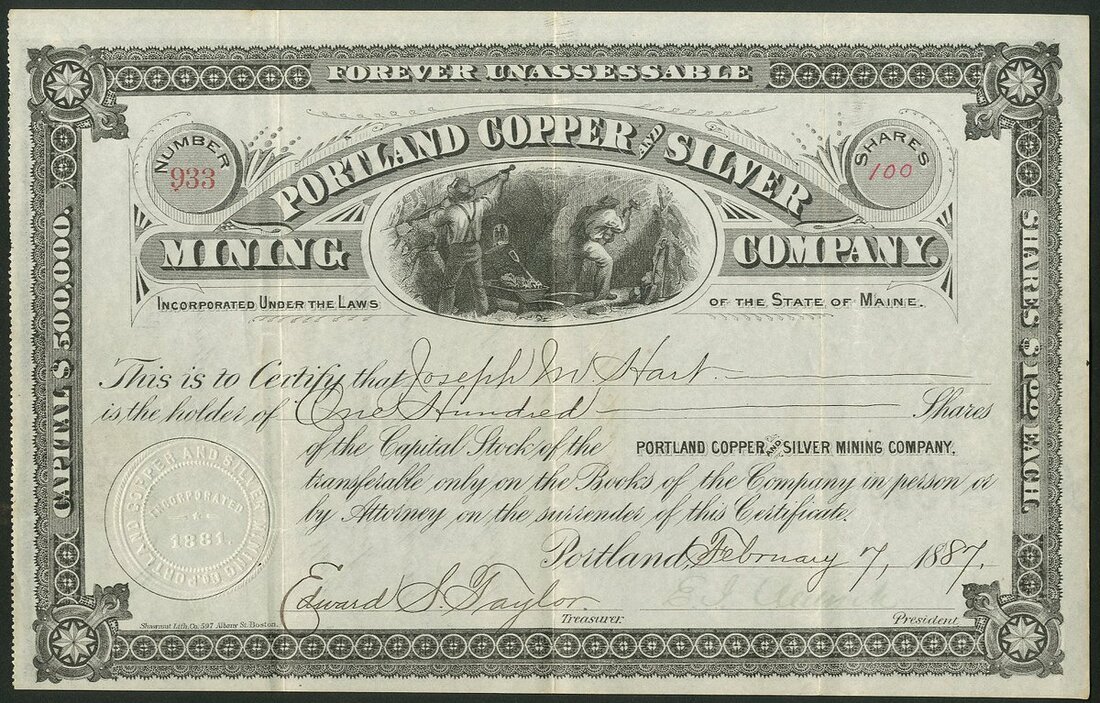 FOREVER UNASSESSABLE
NUMBER
933
SHARES
100
PORTLAND COPPER AND SILVER
MINING COMPANY.
INCORPORATED UNDER THE LAWS OF THE STATE OF MAINE.
CAPITAL $ 500,000.
SHARES $ 1 00 EACH
This is to Certify that Joseph M Hart
is the holder of One Hundred Shares
of the Capital Stock of the PORTLAND COPPER AND SILVER MINING COMPANY,
transferable only on the Books of the Company in person or
by Attorney on the surrender of this Certificate.
Portland, February 7, 1887.
PORTLAND COPPER AND SILVER MINING CO.
INCORPORATED
1881.
Edward S. Taylor
Treasurer.
President.
Lith. Co. 597 Albany St. Boston.